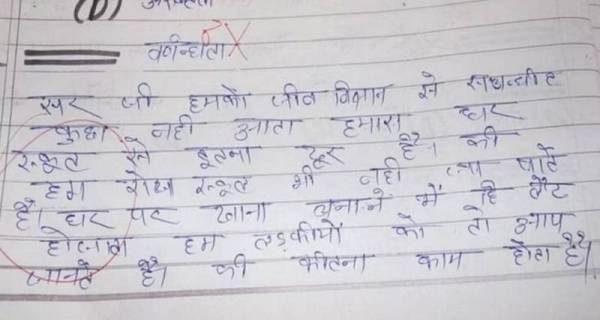 (D)
वर्णान्धता
सर जी हमको जीव विज्ञान से सम्बन्धीत
कुछ नही आता हमारा घर
स्कूल से इतना दूर है। की
हम रोज स्कूल भी नही जा पाते
है। घर पर खाना बनाने में हि लेट
होजाता हम लड़कीयों को तो आप
जानते है। की कीतना काम होता है।